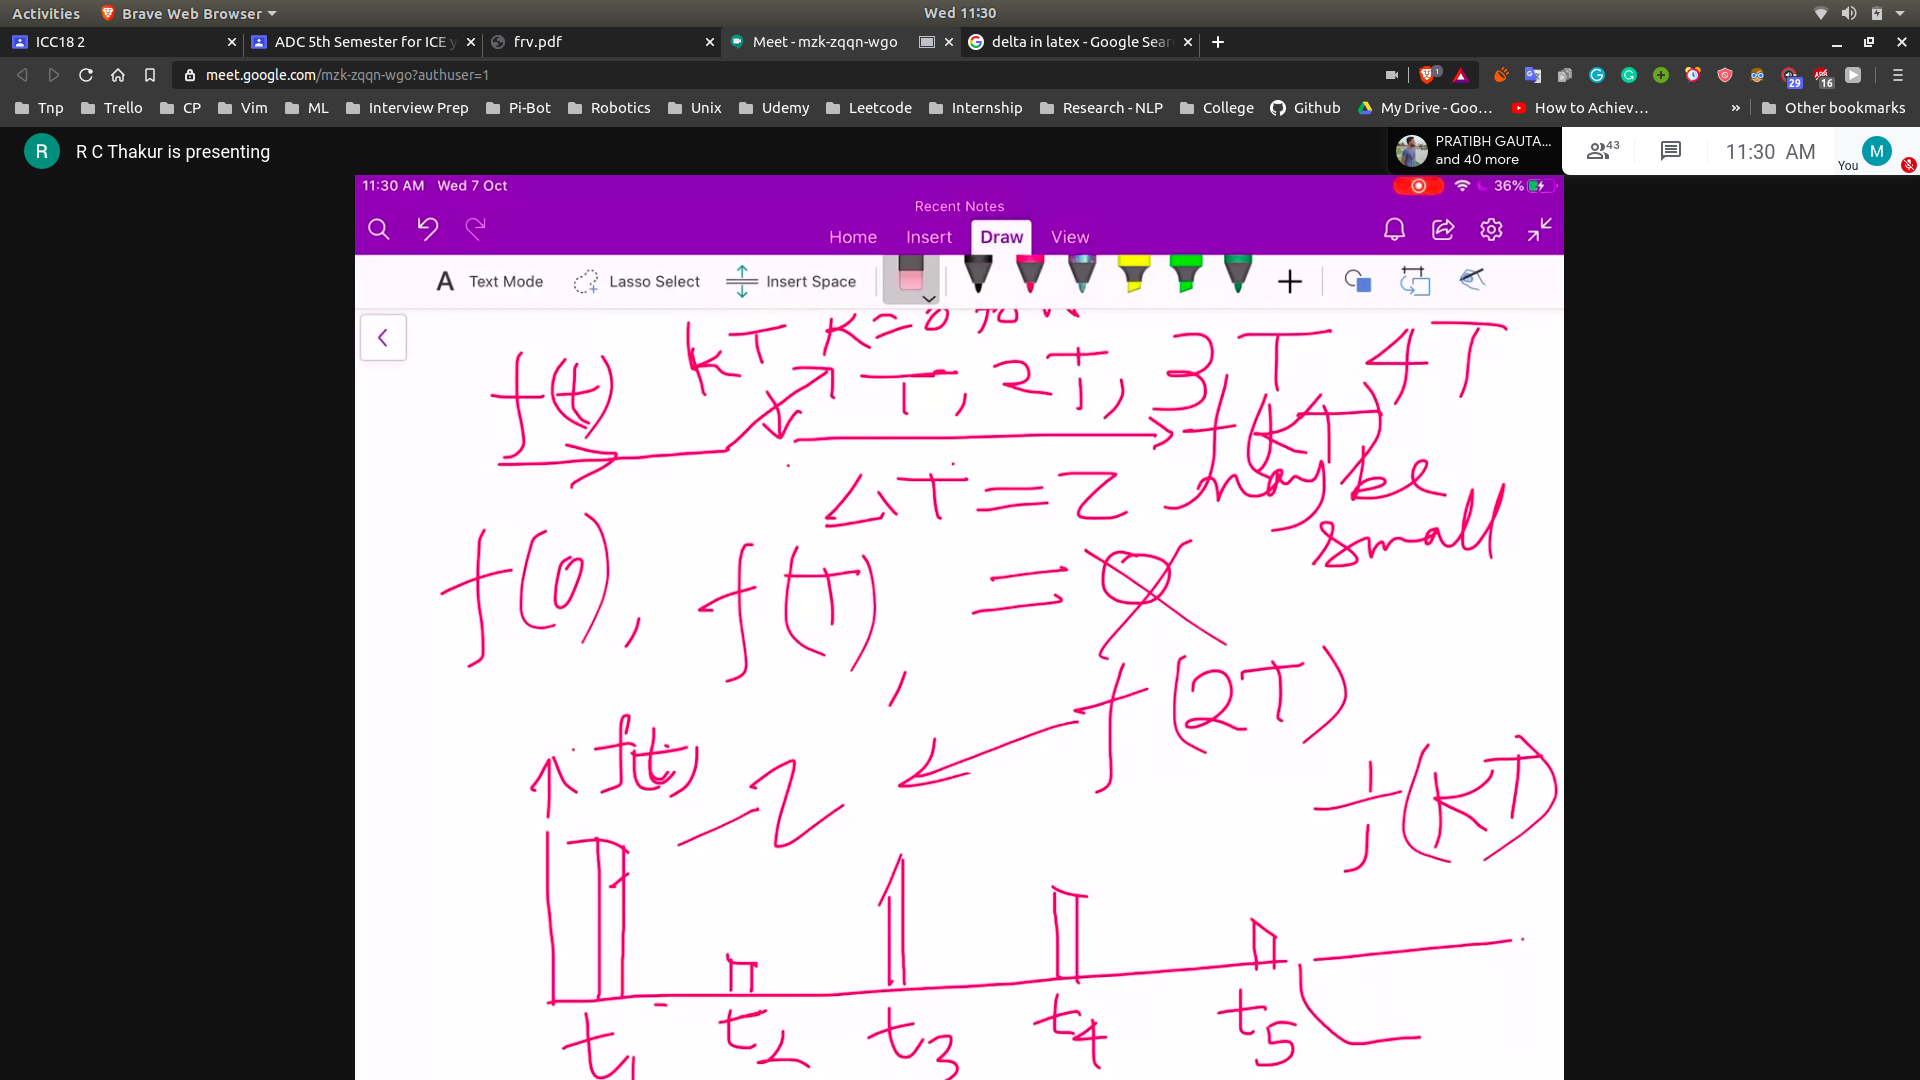 Activities Brave Web Browser Wed 11:30
ICC18 2 ADC 5th Semester for ICE y frv.pdf Meet - mzk-zqqn-wgo delta in latex - Google Sear
meet.google.com/mzk-zqqn-wgo?authuser=1 1 29 16
Tnp Trello CP Vim ML Interview Prep Pi-Bot Robotics Unix Udemy Leetcode Internship Research - NLP College Github My Drive - Goo... How to Achiev... » Other bookmarks
R R C Thakur is presenting PRATIBH GAUTA... and 40 more 43 11:30 AM You M
11:30 AM Wed 7 Oct 36%
Recent Notes
Home Insert Draw View
A Text Mode Lasso Select Insert Space
kT K=0 to
f(t) T, 2T, 3T 4T
f(KT)
ΔT = Z may be
small
f(0), f(T), = 0
f(2T)
f(t) Z f(KT)
t1 t2 t3 t4 t5